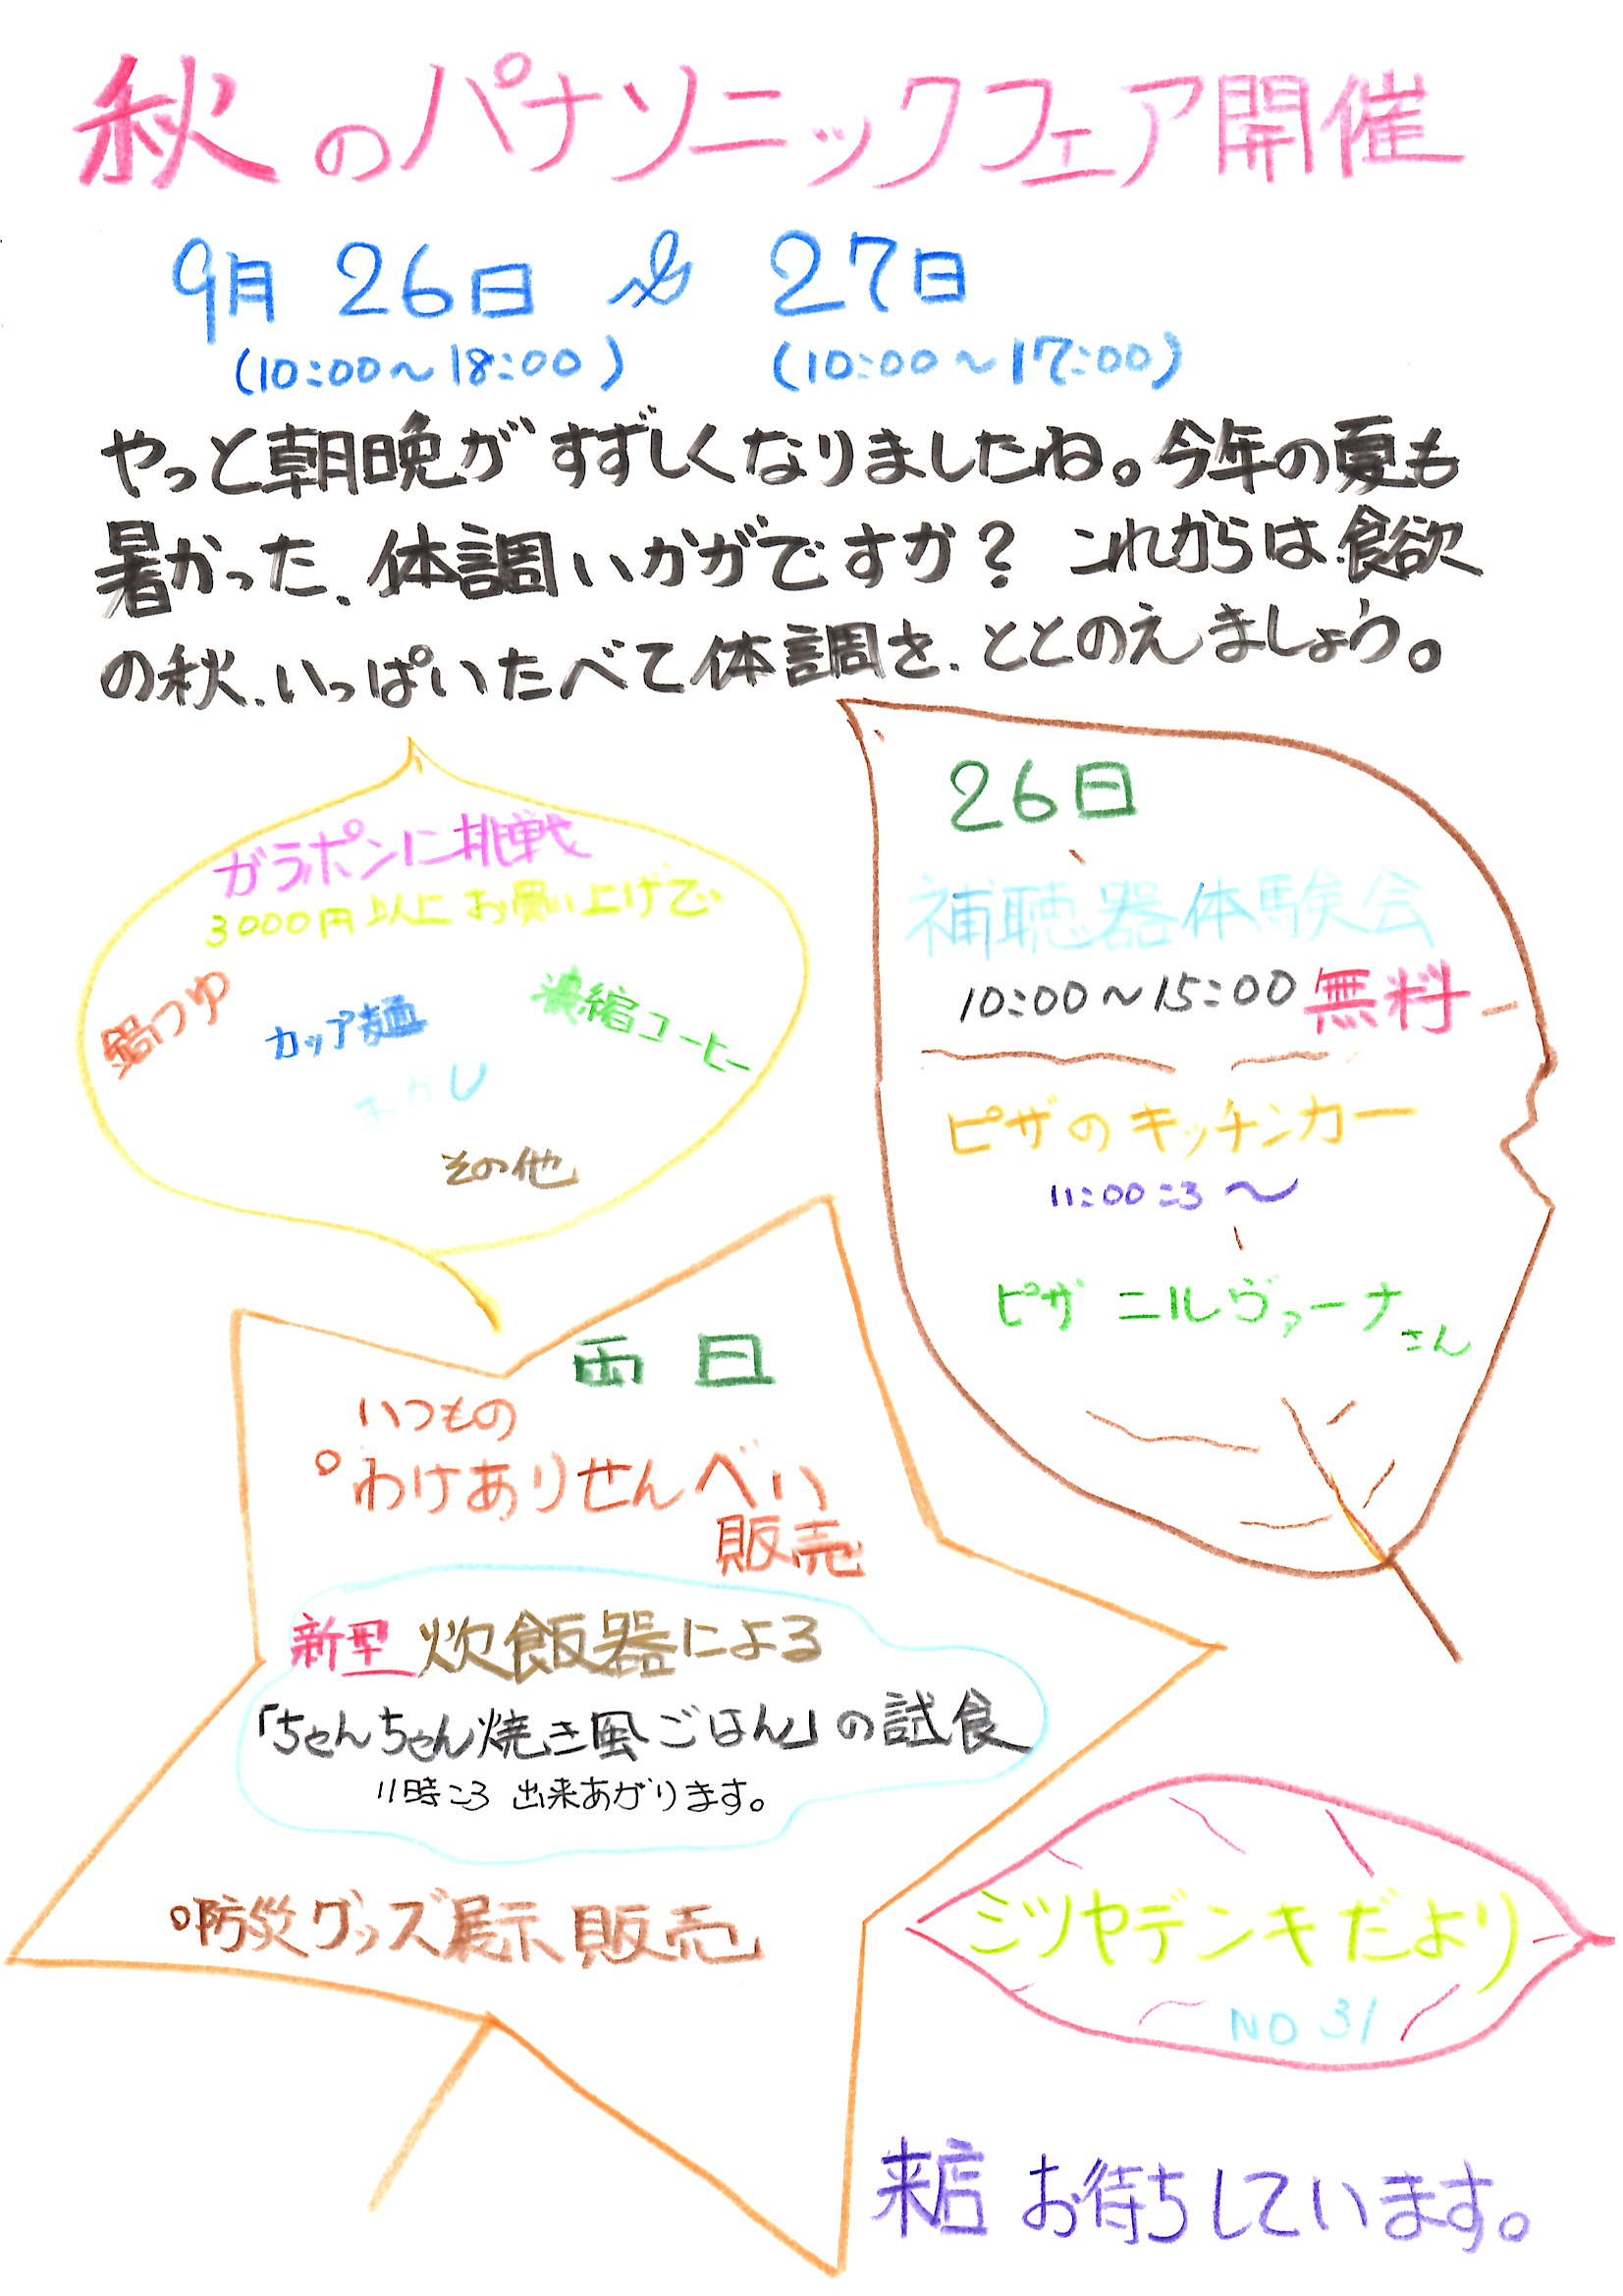 秋のパナソニックフェア開催
9月 26日 & 27日
(10:00～18:00) (10:00～17:00)
やっと朝晩がすずしくなりましたね。今年の夏も
暑かった、体調いかがですか？ これからは食欲
の秋、いっぱいたべて体調を、ととのえましょう。
ガラポンに挑戦
3000円以上お買い上げで
鍋つゆ
カップ麺
濃縮コーヒー
その他
26日
補聴器体験会
10:00～15:00 無料
ピザのキッチンカー
11:00ころ～
ピザ ニルヴァーナさん
両日
いつもの
°わけありせんべい
販売
新型 炊飯器による
「ちゃんちゃん焼き風ごはん」の試食
11時ころ 出来あがります。
°防災グッズ展示販売
ミツヤデンキだより
NO 31
来店 お待ちしています。